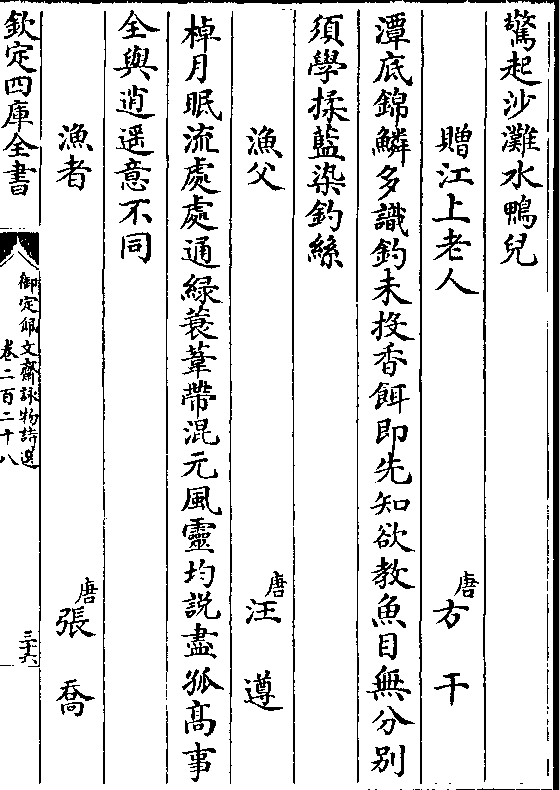 驚起沙灘水鴨兒
贈江上老人 唐 方干
潭底錦鱗多識釣未投香餌即先知欲教魚目無分别
須學揉藍染釣絲
漁父 唐 汪遵
棹月眠流處處通緑蓑葦帶混元風靈均説盡孤髙事
全與逍遥意不同
漁者 唐 張喬
欽定四庫全書
御定佩文齋詠物詩選
卷二百二十八
三十六